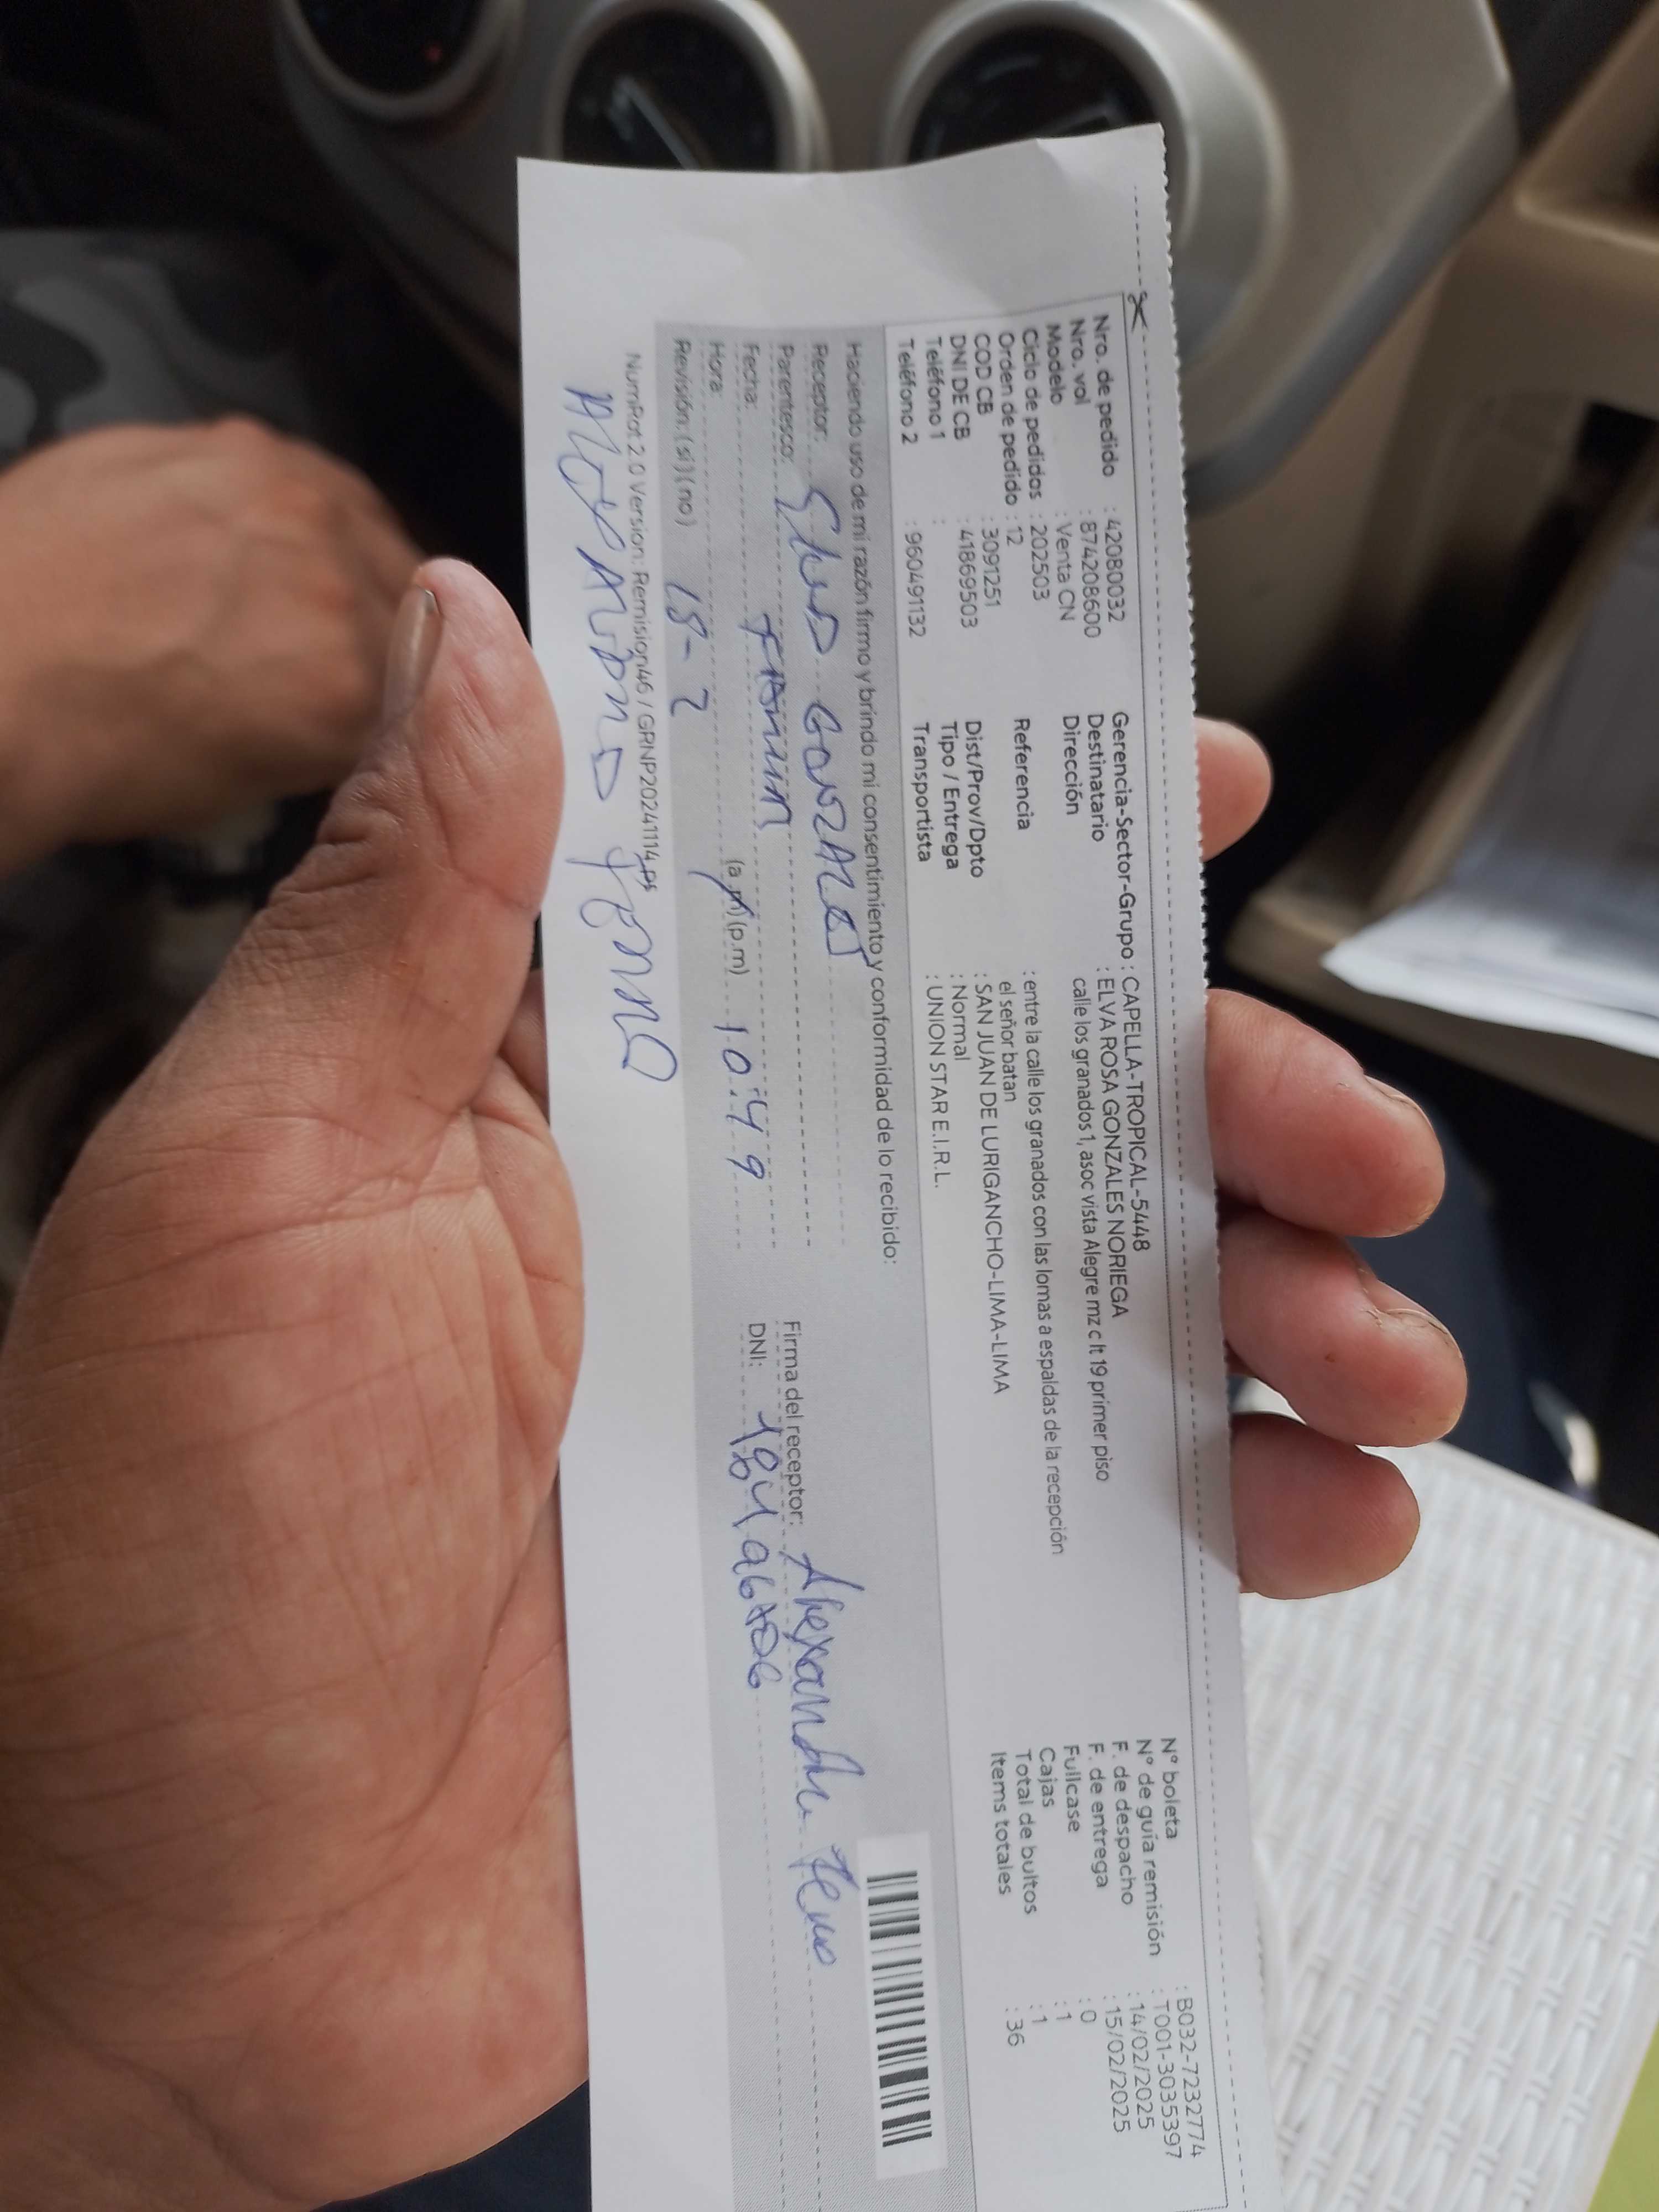 Nro. de pedido : 42080032
Nro. vol : 874208600
Modelo : Venta CN
Ciclo de pedidos : 202503
Orden de pedido : 12
COD CB : 3091251
DNI DE CB : 41869503
Teléfono 1 :
Teléfono 2 : 960491132
Gerencia-Sector-Grupo : CAPELLA-TROPICAL-5448
Destinatario : ELVA ROSA GONZALES NORIEGA
Dirección calle los granados 1, asoc vista Alegre mz c lt 19 primer piso
Referencia : entre la calle los granados con las lomas a espaldas de la recepción
el señor batan
Dist/Prov/Dpto : SAN JUAN DE LURIGANCHO-LIMA-LIMA
Tipo / Entrega : Normal
Transportista : UNION STAR E.I.R.L.
N° boleta : B032-7232774
N° de guía remisión : T001-3035397
F. de despacho : 14/02/2025
F. de entrega : 15/02/2025
Fullcase : 0
Cajas : 1
Total de bultos : 1
Items totales : 36
Haciendo uso de mi razón firmo y brindo mi consentimiento y conformidad de lo recibido:
Receptor: Gonzales
Parentesco:
Fecha:
Hora: (a.m) (p.m) 10:49
Revisión: (si) (no) 15-2
Firma del receptor:
DNI:
NumRot 2.0 Version: Remision46 / GRNP20241114.ps